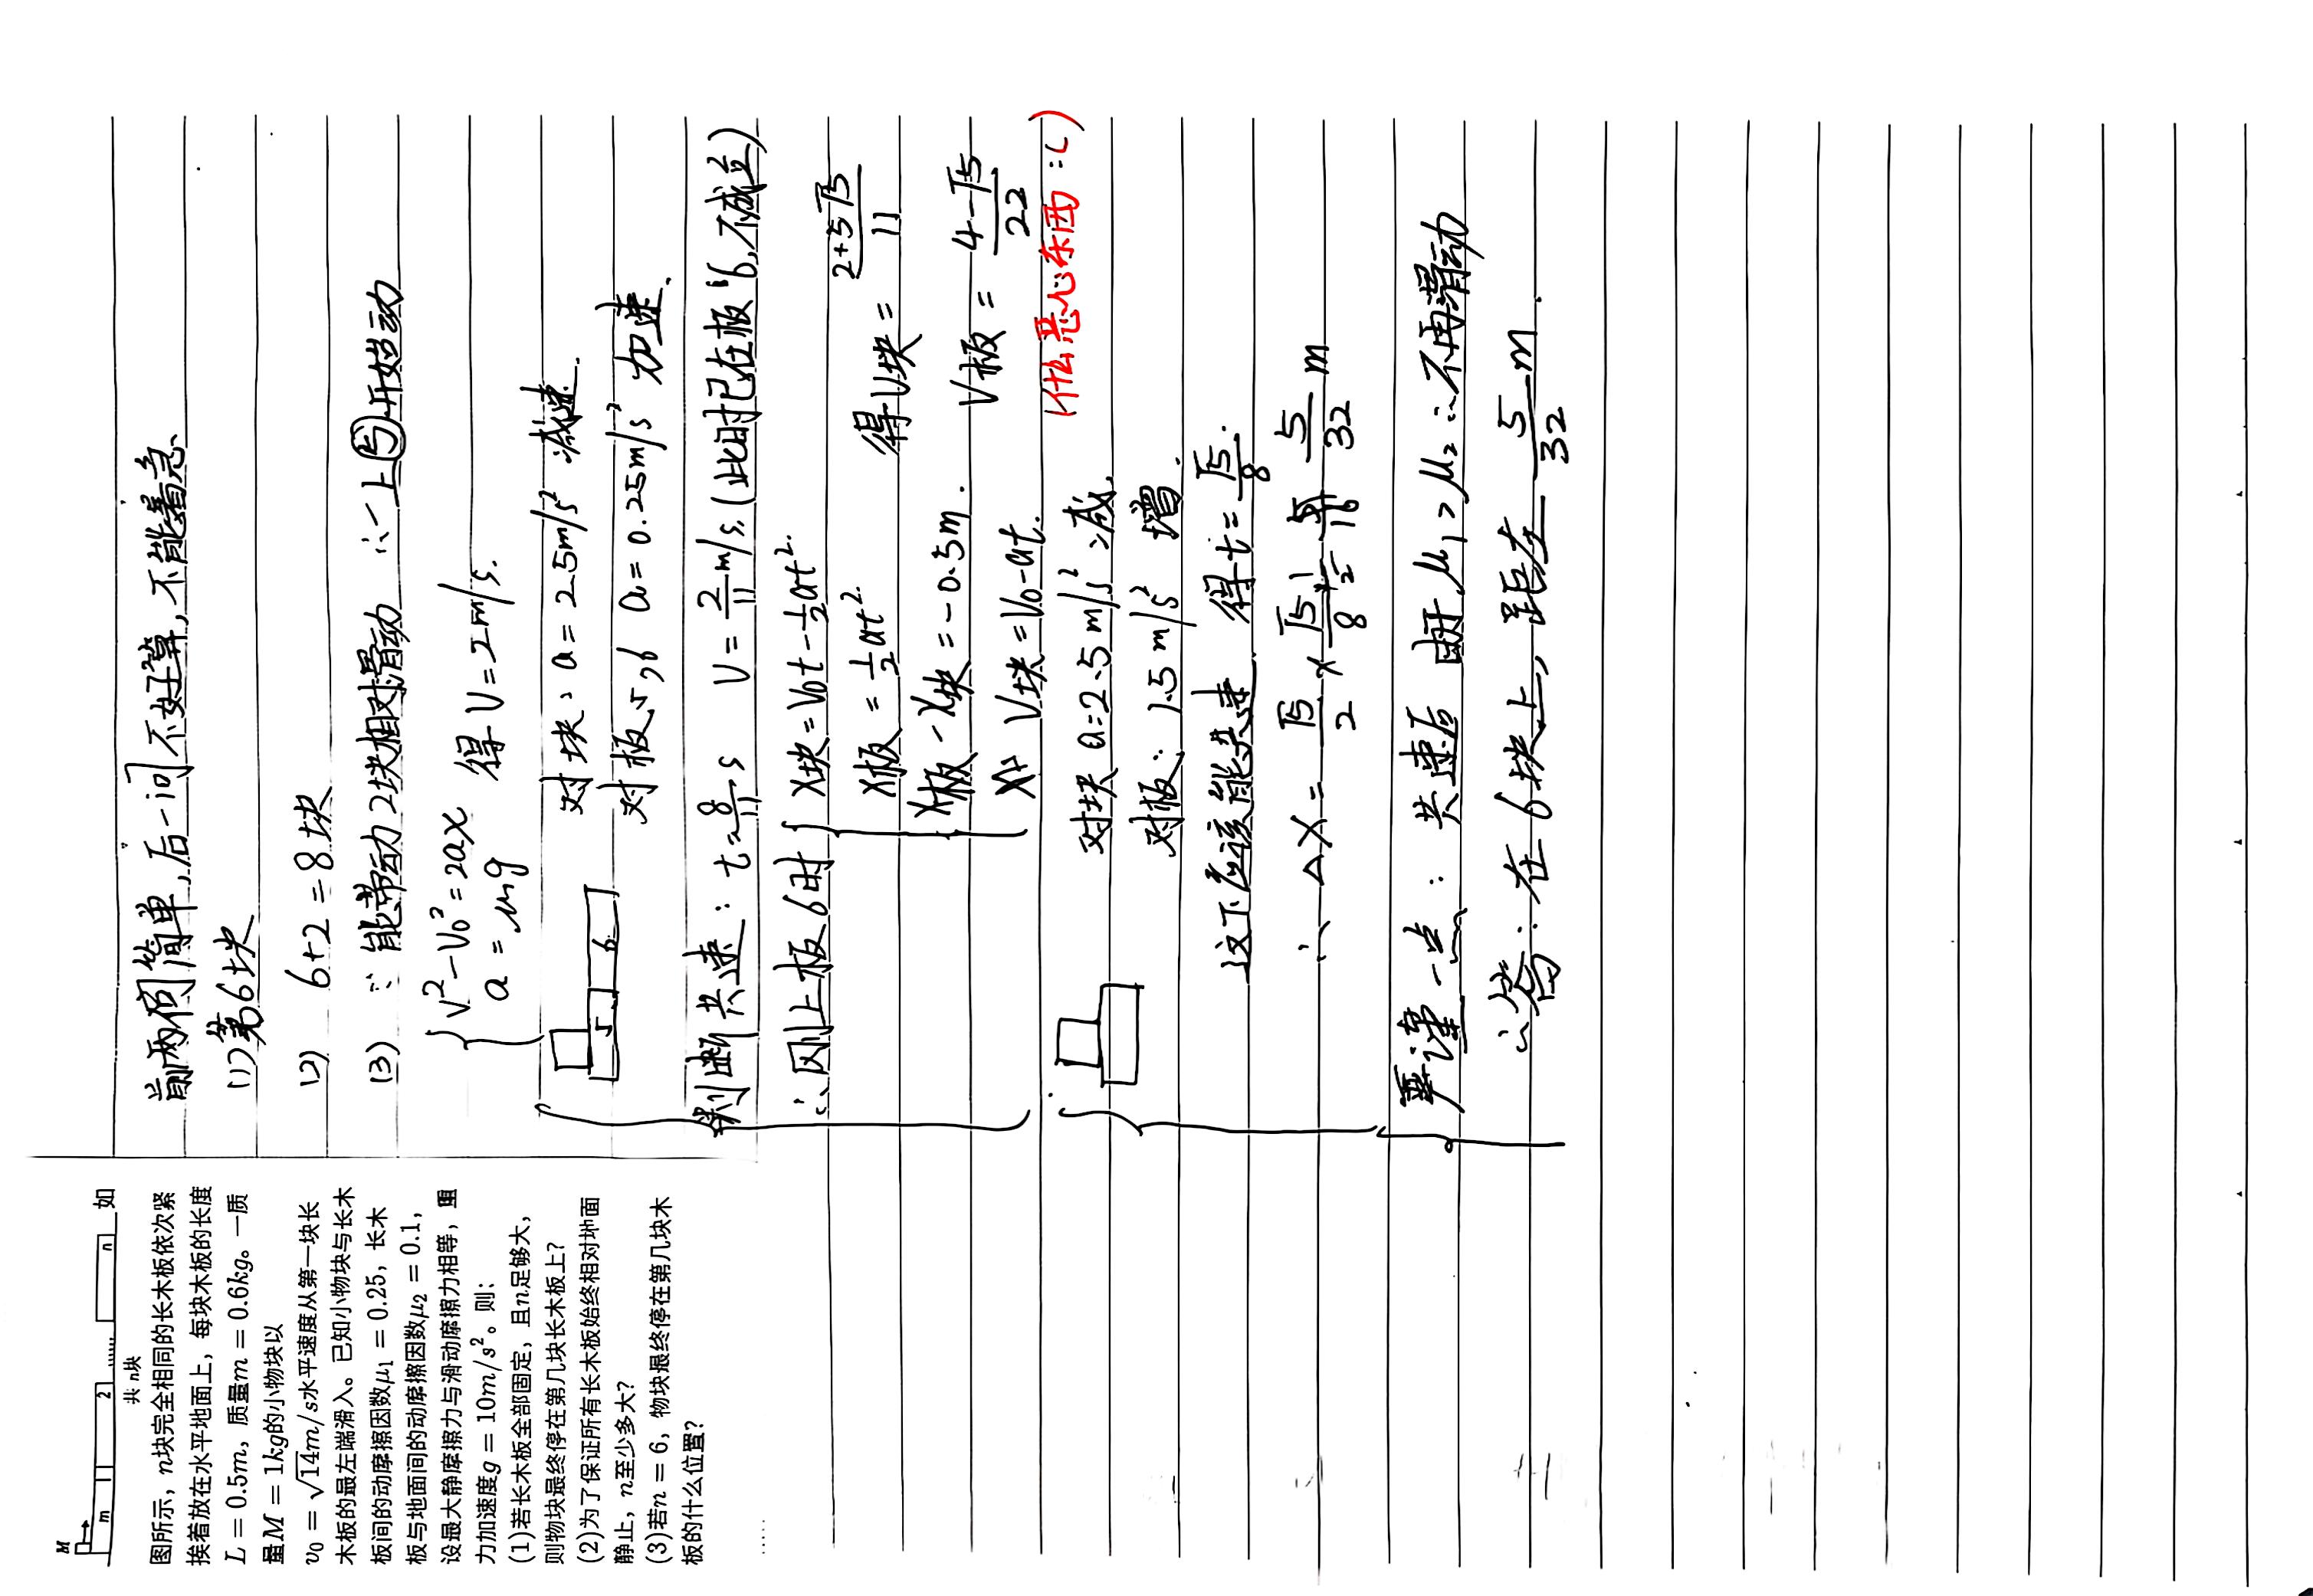 M
m
1
2
n
共 n块
如
图所示，n块完全相同的长木板依次紧
挨着放在水平地面上，每块木板的长度
L = 0.5m，质量m = 0.6kg。一质
量M = 1kg的小物块以
v₀ = √14m/s水平速度从第一块长
木板的最左端滑入。已知小物块与长木
板间的动摩擦因数μ₁ = 0.25，长木
板与地面间的动摩擦因数μ₂ = 0.1，
设最大静摩擦力与滑动摩擦力相等，重
力加速度g = 10m/s²。则：
(1)若长木板全部固定，且n足够大，
则物块最终停在第几块长木板上？
(2)为了保证所有长木板始终相对地面
静止，n至少多大？
(3)若n = 6，物块最终停在第几块木
板的什么位置？
……
前两问简单，后一问不好算，不能着急、
(1)第6块
(2) 6+2=8块
(3) ∵能带动2块相对滑动 ∴一上⑤开始动
V²-V₀²=2ax
a=μg
得V=2m/s.
5 6
对块：a=2.5m/s² 减速.
对板5,6 a=0.25m/s² 加速.
判断共速：t=8/11 s V=2/11 m/s.(此时已在板6,不成立)
∴刚上板6时
X块=V₀t-½at²
X板=½at².
X板-X块=-0.5m.
V块=V₀-at.
得V块=(2+5√5)/11
V板=(4-√5)/22
(什么恶心东西:()
对块a=2.5m/s²减.
对板：1.5m/s² 增.
这下应该能共速 得t=√5/8.
∴△X=√5/2×√5/8×½=5/32 m
严谨一点：共速后 由于μ₁>μ₂∴不再滑动
∴答：在6块上，距左 5/32 m.